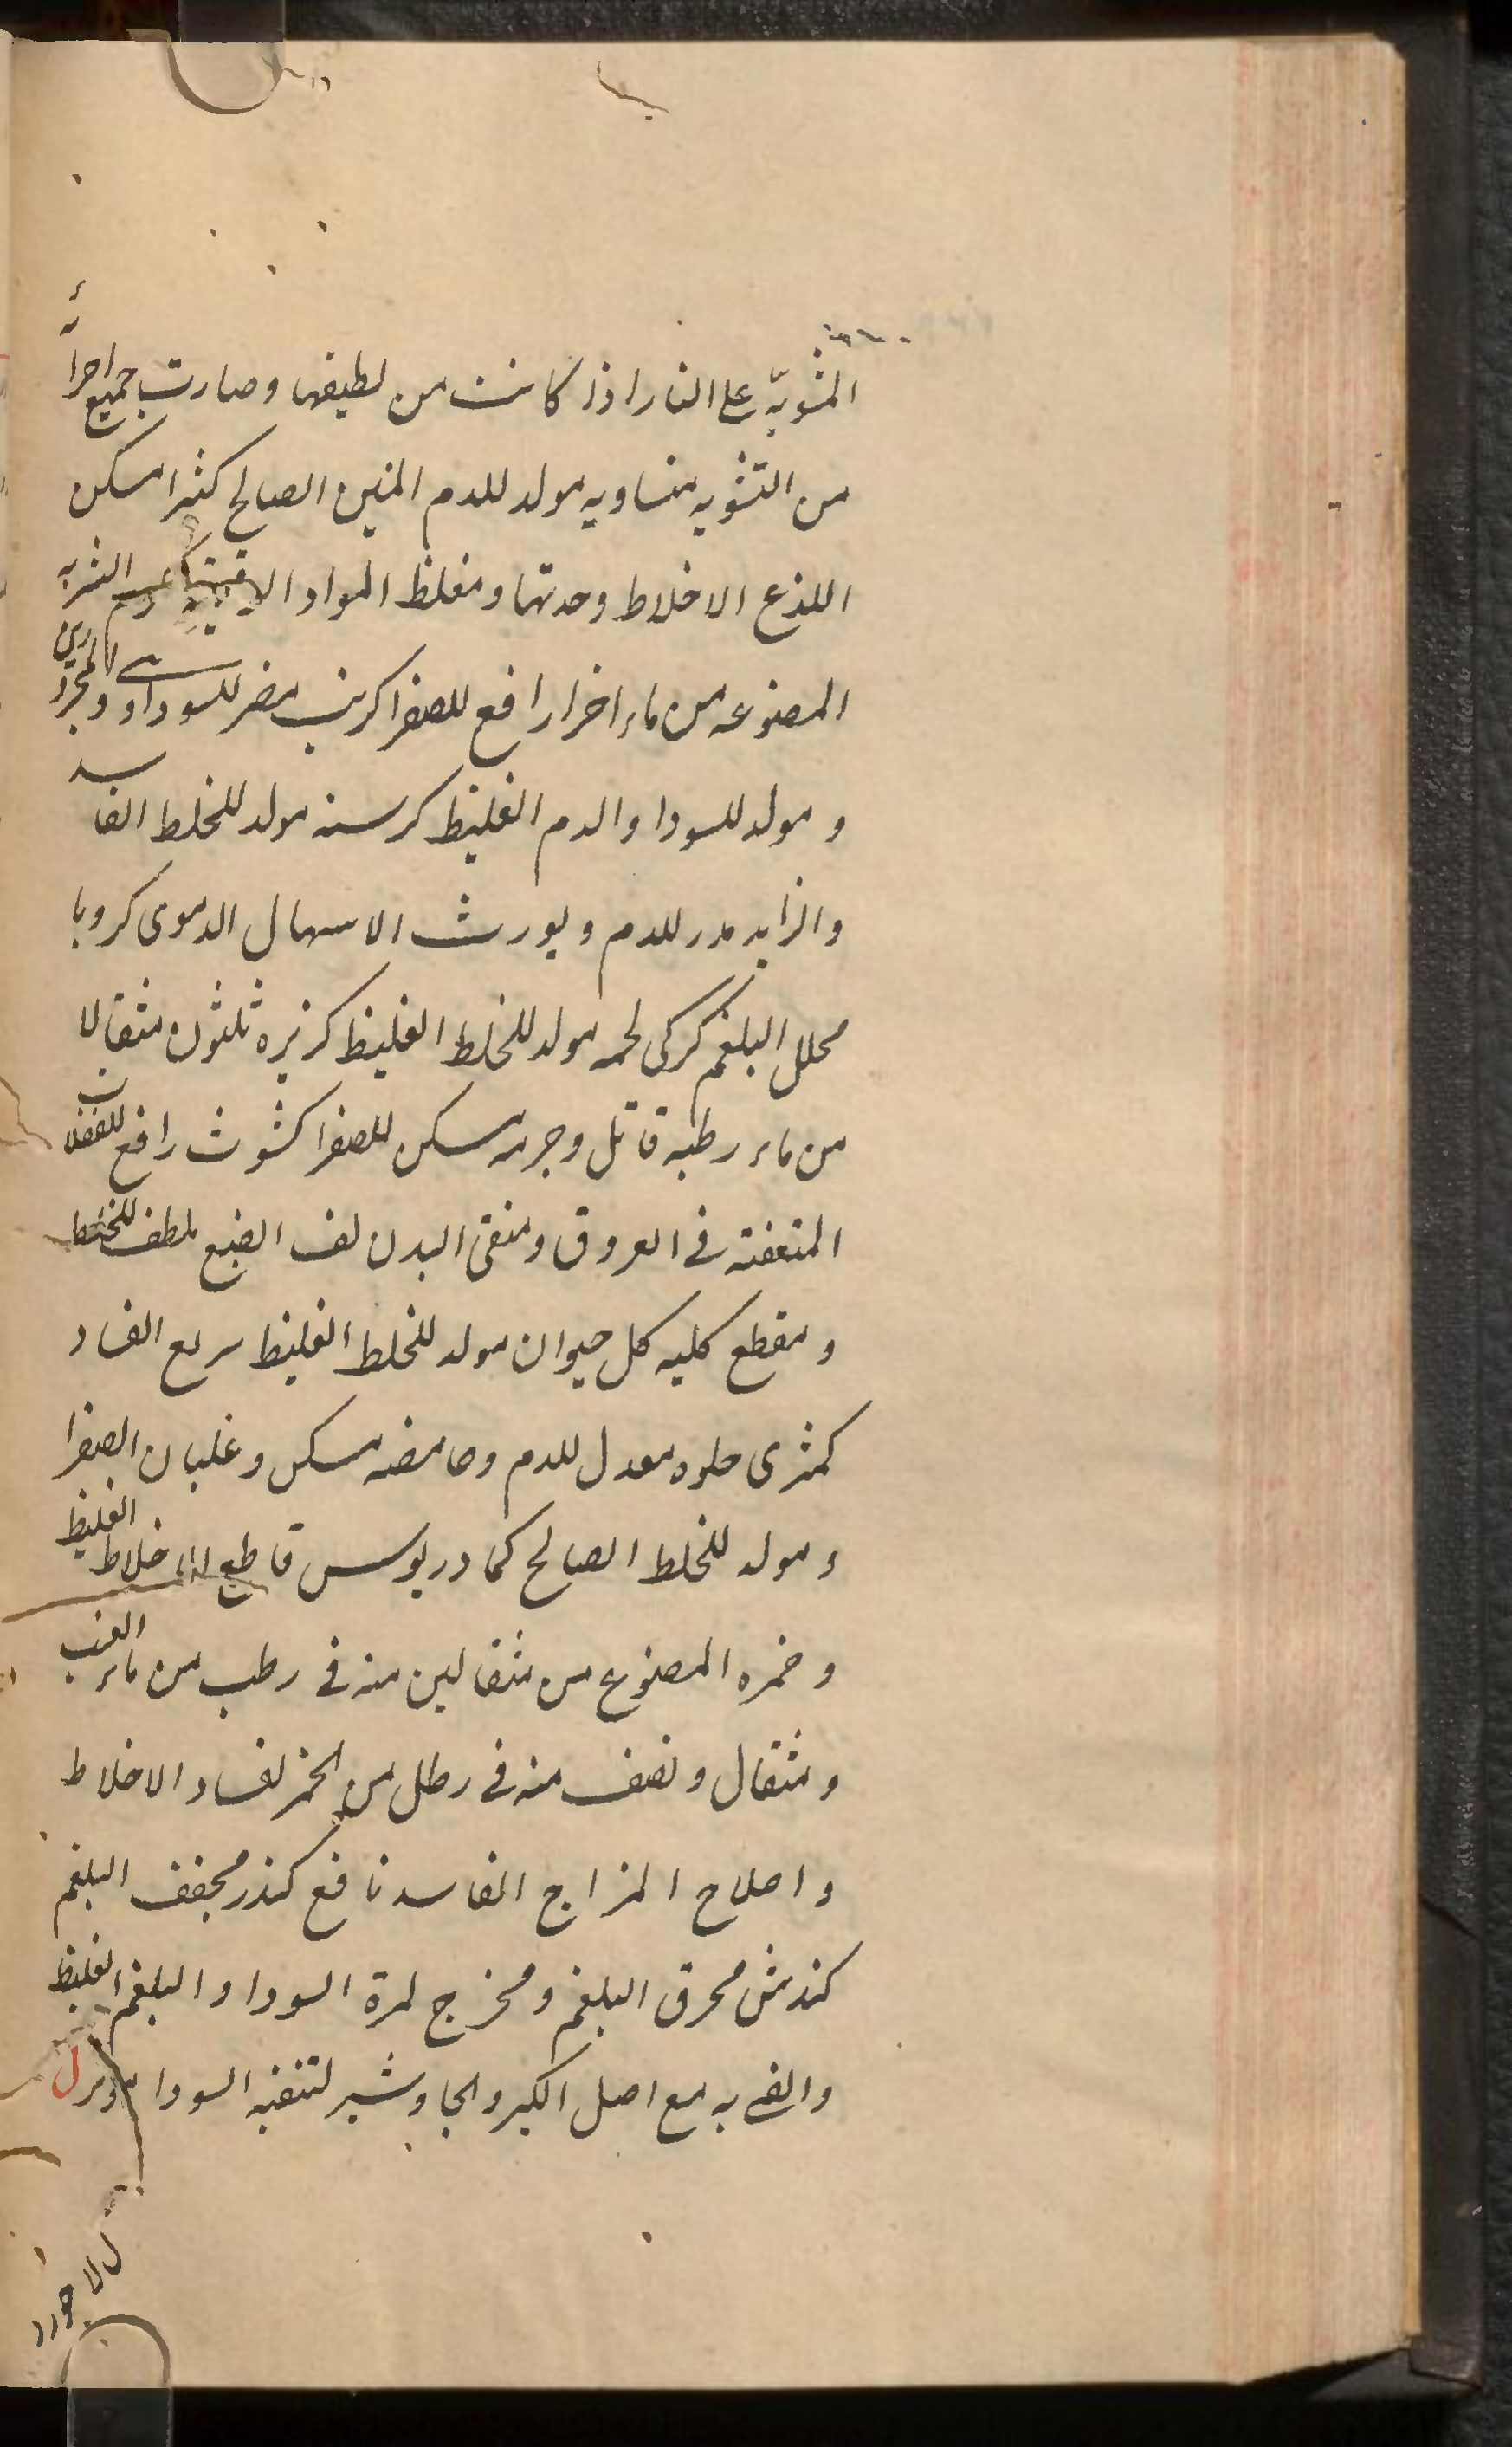 المشویّه علی النار اذا کانت من لطیفها وصارت جمیع اجزاءه
من التشویه متساویه مولد للدم المتین الصالح کثیرا مسکن
اللذع الاخلاط وحدتها ومغلظ المواد الرقیقه الشربه
المصنوعه من ماء رافع للصفرا کرنب مضر للسوداوی والمحرورین
و مولد للسودا والدم الغلیظ کرسنه مولد للخلط الفاسد
والزاید مدر للدم ویورث الاسهال الدموی کرویا
محلل البلغم کرکی لحمه مولد للخلط الغلیظ کزبره ثلثون مثقالا
من ماء رطبه قاتل وجرمه مسکن للصفرا کشوث رافع للفضلات
المتعفنه فی العروق ومنقی البدن لف الضبع ملطف للخلط
و مقطع کلیه کل حیوان مولد للخلط الغلیظ سریع الفساد
کمثری حلوه معدل للدم وحامضه مسکن وغلیان الصفرا
و مولد للخلط الصالح کمادریوس قاطع الاخلاط الغلیظ
و خمره المصنوع من مثقالین منه فی رطب من ماء العنب
و مثقال ونصف منه فی رطل من الخمر لفساد الاخلاط
و اصلاح المزاج الفاسد نافع کندر مجفف البلغم
کندش محرق البلغم ومخرج لمرة السودا والبلغم الغلیظ
والقی به مع اصل الکبر والجاوشیر لتنقیه السودا ل
لاجورد